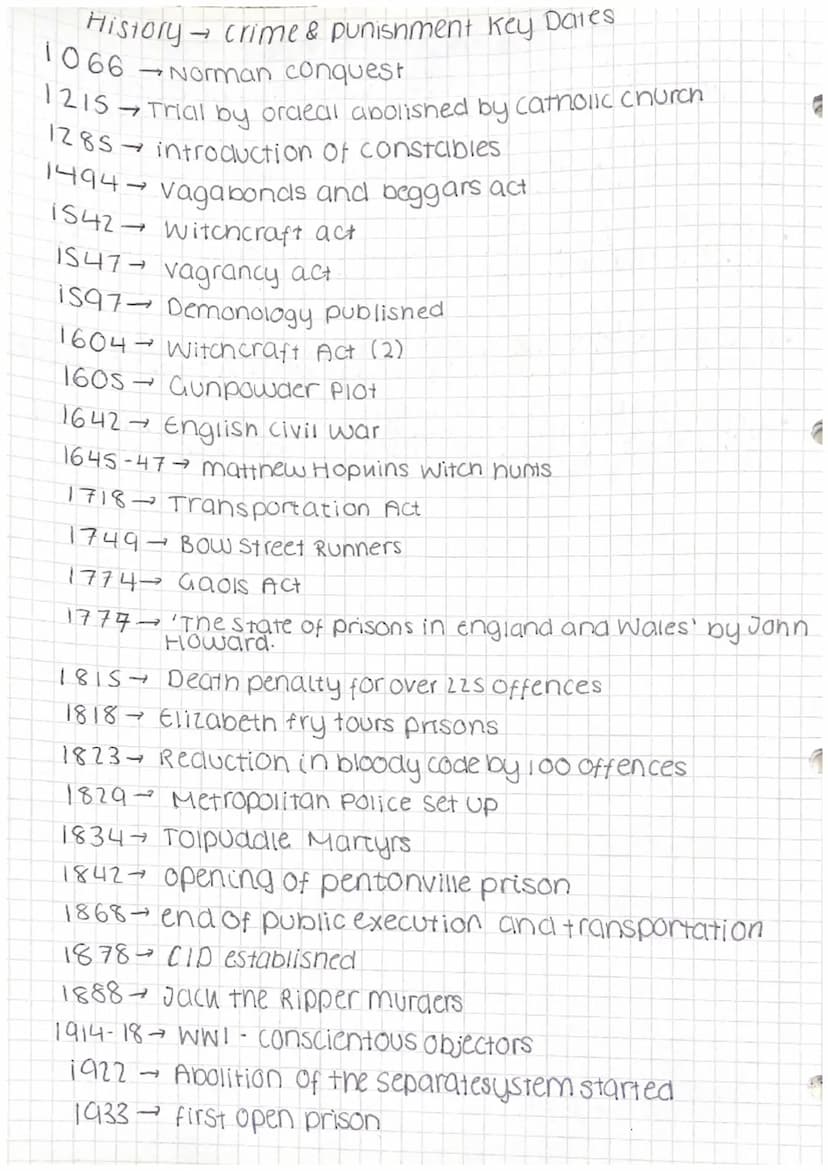 History → crime & punishment Key Dates
1066 → Norman conquest
1215 → Trial by ordeal abolished by catholic church
1285 → introduction of constables
1494 → vagabonds and beggars act
1542 → Witchcraft act
1547 → vagrancy act
1597 → Demonology published
1604 → Witchcraft Act (2)
1605 → Gunpowder Plot
1642 → English civil war
1645-47 → Matthew Hopkins witch hunts
1718 → Transportation Act
1749 → Bow Street Runners
1774 → Gaols Act
1777 → 'The state of prisons in england and Wales' by John
Howard.
1815 → Death penalty for over 225 offences
1818 → Elizabeth fry tours prisons
1823 → Reduction in bloody code by 100 offences
1829 → Metropolitan Police set up
1834 → Tolpuddle Martyrs
1842 → opening of pentonville prison
1868 → end of public execution and transportation
1878 → CID established
1888 → Jack the Ripper murders
1914-18 → WW1 - conscientous objectors
1922 → Abolition of the separate system started
1933 → first open prison